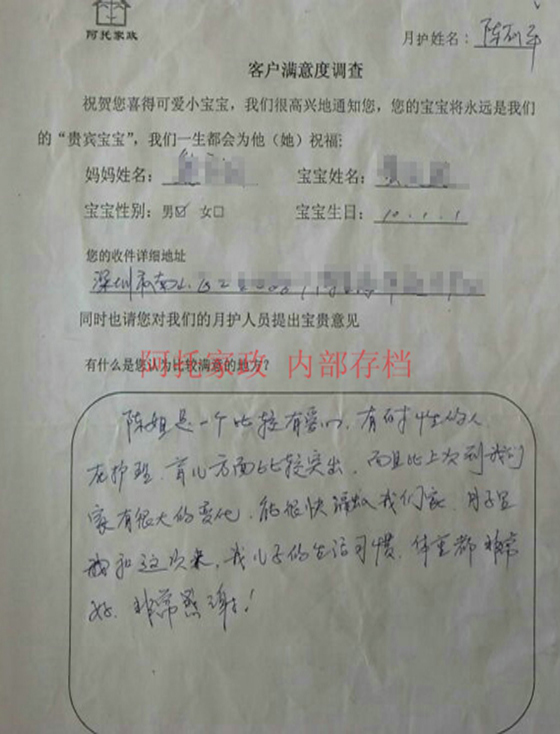 阿托家政
月护姓名：陈
客户满意度调查
祝贺您喜得可爱小宝宝，我们很高兴地通知您，您的宝宝将永远是我们
的“贵宾宝宝”，我们一生都会为他（她）祝福：
妈妈姓名： 宝宝姓名：
宝宝性别：男☑ 女☐ 宝宝生日：10.1.1
您的收件详细地址
深圳市南山区
同时也请您对我们的月护人员提出宝贵意见
有什么是您认为比较满意的地方？
阿托家政 内部存档
陈姐是一个比较有爱心，有耐性的人
在护理，育儿方面比较突出，而且比上次到我们
家有很大的变化，能很快融入我们家，月子里
和这次来，我儿子的生活习惯，体重都非常
好，非常感谢！